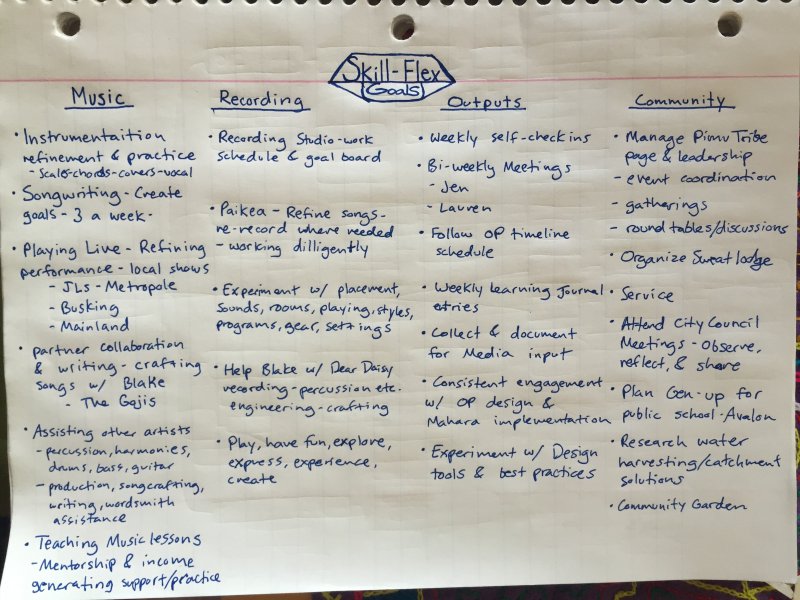 Skill-Flex
Goals
Music
• Instrumentaition
refinement & practice
- scales-chords-covers-vocal
• Songwriting - Create
goals - 3 a week -
• Playing Live - Refining
performance - local shows
- JLs - Metropole
- Busking
- Mainland
• partner collaboration
& writing - crafting
songs w/ Blake
- The Gajis
• Assisting other artists
- percussion, harmonies,
drums, bass, guitar
- production, songcrafting,
writing, wordsmith
assistance
• Teaching Music lessons
- Mentorship & income
generating support/practice
Recording
• Recording Studio - work
schedule & goal board
• Paikea - Refine songs -
re-record where needed
- working dilligently
• Experiment w/ placement,
sounds, rooms, playing, styles,
programs, gear, settings
• Help Blake w/ Dear Daisy
recording - percussion etc.
engineering - crafting
• Play, have fun, explore,
express, experience,
create
Outputs
• Weekly self-check ins
• Bi-weekly Meetings
- Jen
- Lauren
• Follow OP timeline
schedule
• Weekly Learning Journal
entries
• Collect & document
for Media input
• Consistent engagement
w/ OP design &
Mahara implementation
• Experiment w/ Design
tools & best practices
Community
• Manage Pimu Tribe
page & leadership
- event coordination
- gatherings
- round tables/discussions
• Organize Sweat lodge
• Service
• Attend City Council
Meetings - Observe,
reflect, & share
• Plan Gen-up for
public school - Avalon
• Research water
harvesting/catchment
solutions
• Community Garden